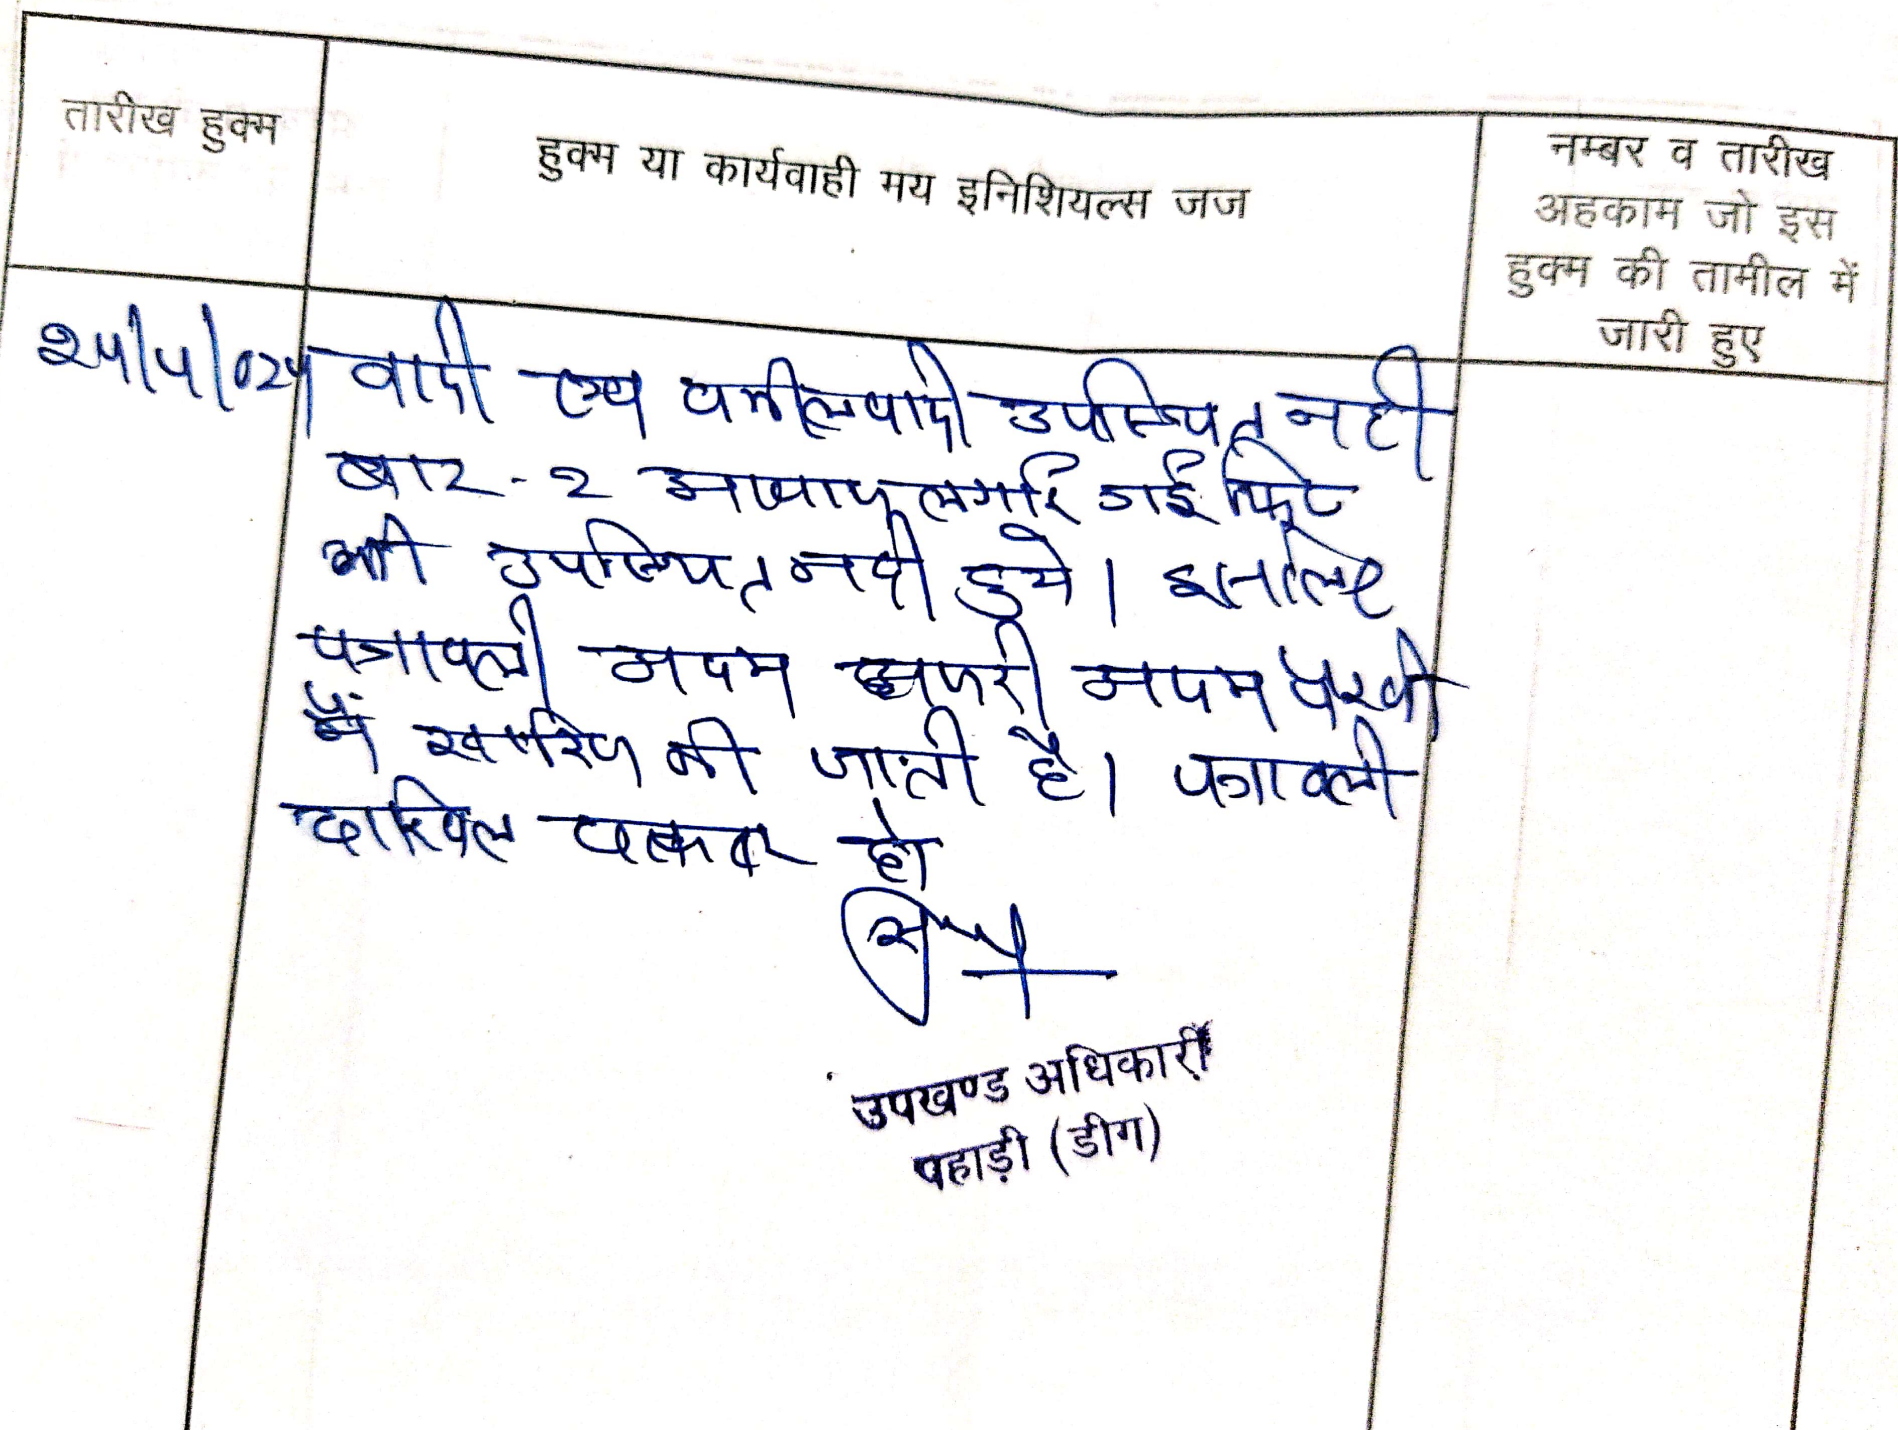 तारीख हुक्म
हुक्म या कार्यवाही मय इनिशियल्स जज
नम्बर व तारीख
अहकाम जो इस
हुक्म की तामील में
जारी हुए
वादी एवं वकील वादी उपस्थित नही
बार-२ आवाज लगाई गई फिर
भी उपस्थित नही हुये। इसलिए
पत्रावली अदम हाजरी अदम पैरवी
में खारिज की जाती है। पत्रावली
दाखिल दफ्तर हो
उपखण्ड अधिकारी
पहाड़ी (डीग)